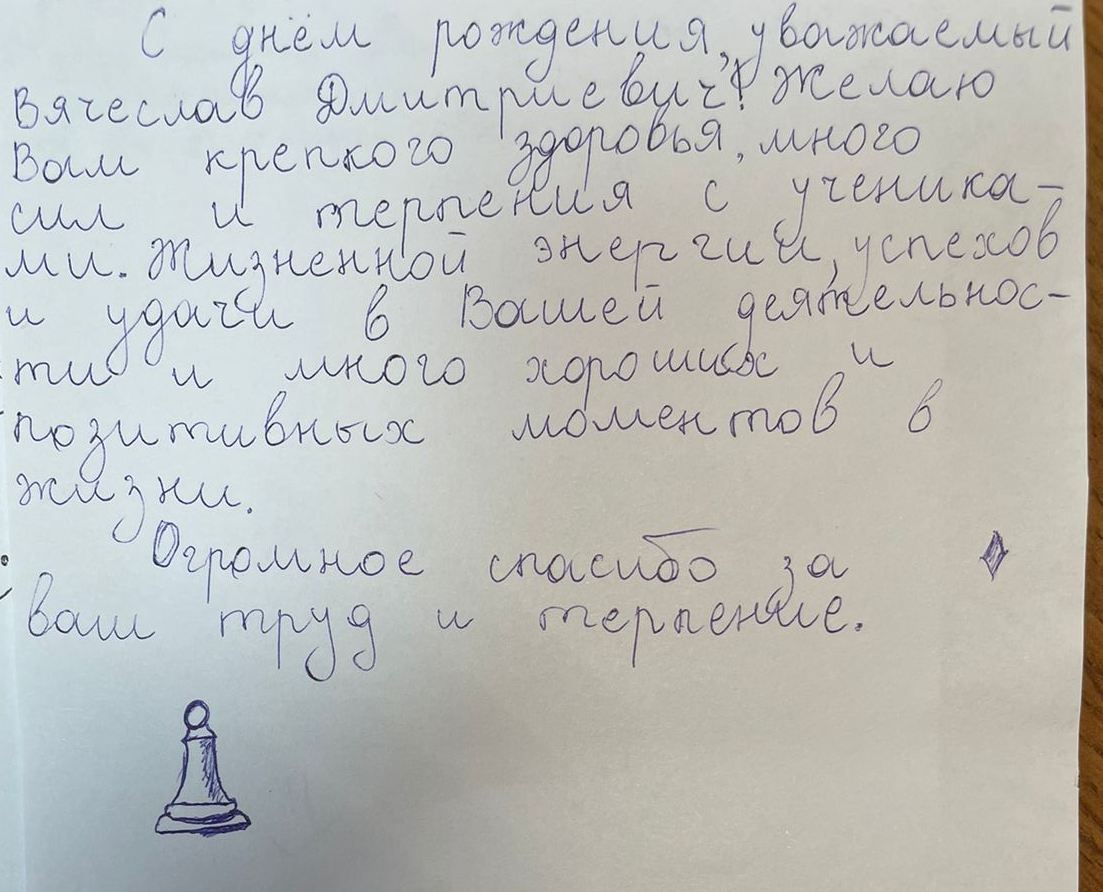 С днём рождения, уважаемый
Вячеслав Дмитриевич! Желаю
Вам крепкого здоровья, много
сил и терпения с ученика-
ми. Жизненной энергии, успехов
и удачи в Вашей деятельнос-
ти и много хороших и
позитивных моментов в
жизни.
Огромное спасибо за
ваш труд и терпение.